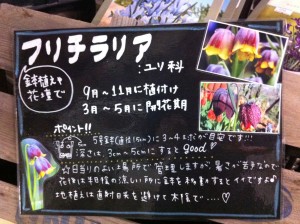 フリチラリア
:ユリ科
鉢植えや
花壇で
9月〜11月に植付け
3月〜5月に開花期
ポイント!!
5号鉢(直径15cm)に3〜4コが目安です!!!
深さは、3cm〜5cmにするとgood♡
☆日当りのよい場所で管理しますが、暑さが苦手なので
花後は半日陰の涼しい所に鉢を移動するとイイですよ♪
地植えは直射日光を避けて木陰で‥‥♡